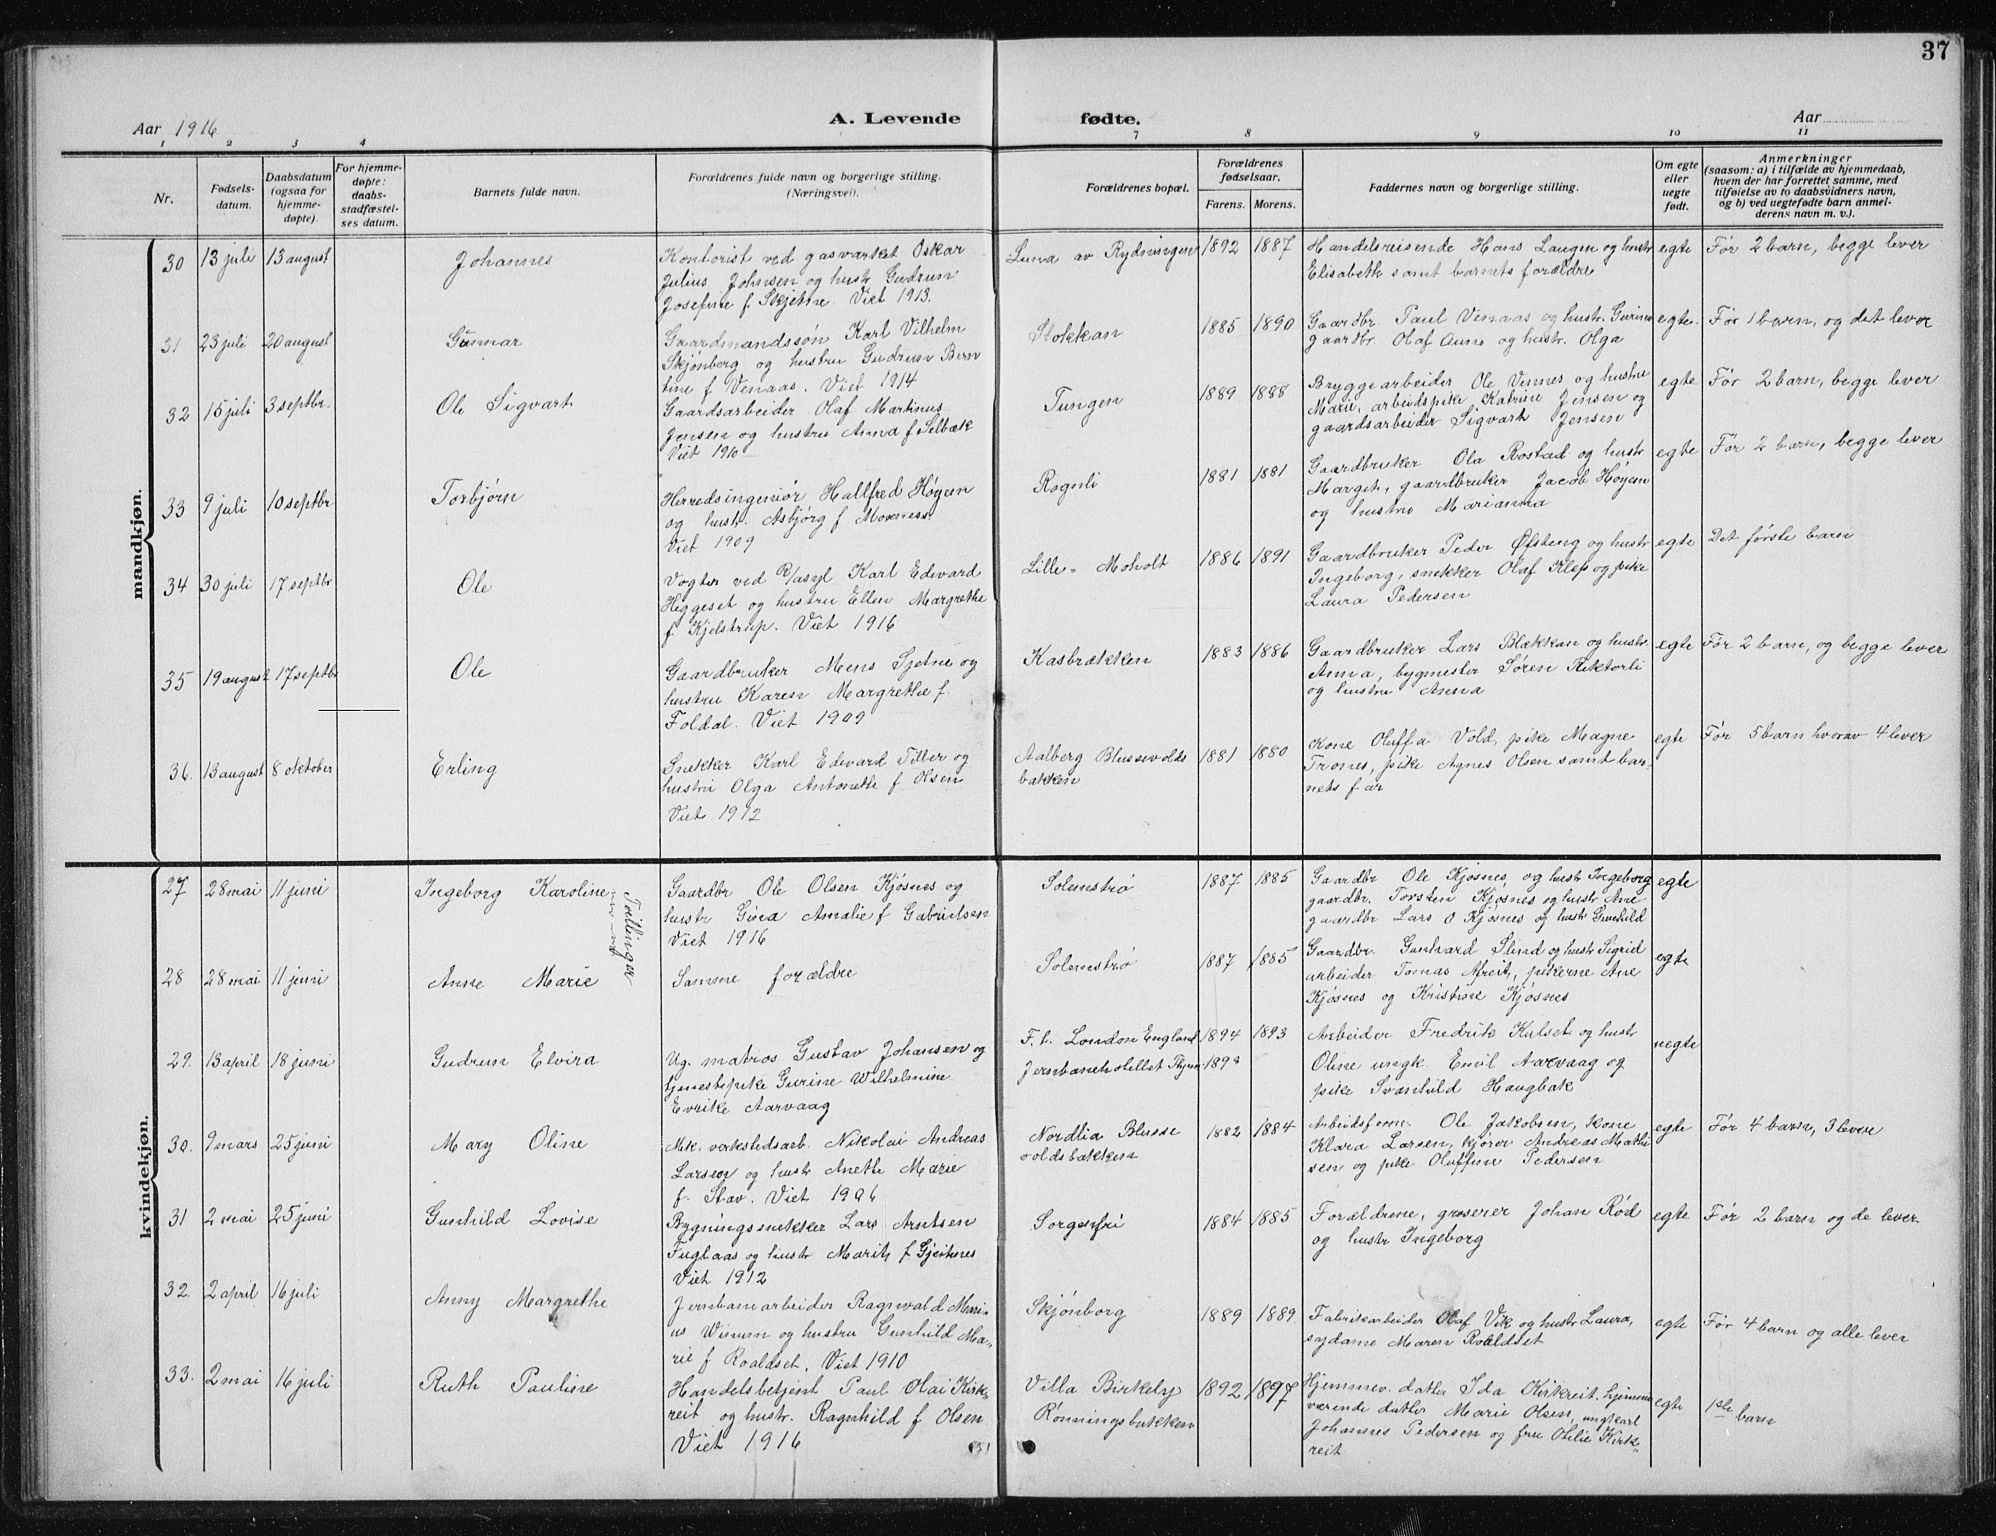 37
Aar 1916
A. Levende fødte.
Aar
1 2 3 4 7 8 9 10 11
Nr.
Fødsels-
datum.
Daabsdatum
(ogsaa for
hjemme-
døpte).
For hjemme-
døpte:
daabs-
stadfæstel-
ses datum.
Barnets fulde navn.
Forældrenes fulde navn og borgerlige stilling.
(Næringsvei).
Forældrenes bopæl.
Forældrenes
fødselsaar.
Farens. Morens.
Faddernes navn og borgerlige stilling.
Om egte
eller
uegte
født.
Anmerkninger
(saasom: a) i tilfælde av hjemmedaab,
hvem der har forrettet samme, med
tilføielse av to daabsvidners navn,
og b) ved uegtefødte barn anmel-
derens navn m. v.).
mandkjøn.
30 13 juli 13 august Johannes
Kontorist ved gasværket Oskar
Julius Johnsen og hustr Gudrun
Josefine f. Skjetne. Viet 1913.
Luna av Rydningen 1892 1887
Handelsreisende Hans Langen og hustr
Elisabeth samt barnets forældre
egte Før 2 barn, begge lever
31 23 juli 20 august Gunnar
Gaardmandssøn Karl Vilhelm
Skjønberg og hustru Gudrun Bern
tine f Venaas. Viet 1914
Stokkan 1885 1890
Gaardbr. Paul Venaas og hustr. Gurine
gaardbr. Olaf Aune og hustr. Olga
egte. Før 1 barn, og det lever
32 15 juli 3 septbr. Ole Sigvart
Gaardsarbeider Olaf Martinus
Jensen og hustru Anna f Selbæk
Viet 1910
Tungen 1889 1888
Bryggearbeider Ole Vennes og hustru
Marie, arbeidspike Katrine Jensen og
gaardsarbeider Sigvart Jensen
egte Før 2 barn, begge lever
33 9 juli 10 septbr Torbjørn
Herredsingeniør Hallfred Høyem
og hustr. Asbjørg f Moxness.
Viet 1909
Rognli 1881 1881
Gaardbruker Ola Rostad og hustr
Margit, gaardbruker Jacob Høyem
og hustru Marianna
egte Før 2 barn, begge lever
34 30 juli 17 septbr Ole
Vogter ved R/asyl Karl Edvard
Heggeset og hustru Ellen Margrethe
f. Kjelstrup. Viet 1916
Lille- Moholt 1886 1891
Gaardbruker Peder Øfsteng og hustr
Ingeborg, snekker Olaf Klep og pike
Laura Pedersen
egte Det første barn
35 19 august 17 septbr Ole
Gaardbruker Mens Sjetne og
hustru Karen Margrethe f.
Foldal. Viet 1909
Kasbrækken 1883 1886
Gaardbruker Lars Blækkan og hustr
Anna, bygmester Søren Rektorli
og hustru Anna
egte Før 2 barn, og begge lever
36. 13 august 8 oktober Erling
Snekker Karl Edvard Tiller og
hustru Olga Antonette f Olsen
Viet 1912
Aalberg Blussevolds
bakken 1881 1880
Kone Oluffa Vold, pike Magne
Trones, pike Agnes Olsen samt bar-
nets far
egte Før 5 barn hvorav 4 lever
kvindekjøn.
27 28 mai 11 juni Ingeborg Karoline
Tvillinger
Gaardbr Ole Olsen Kjøsnes og
hustr Gina Amalie f Gabrielsen
Viet 1916
Solemstrø 1887 1885
Gaardbr Ole Kjøsnes, og hustr Ingeborg
gaardbr. Torsten Kjøsnes og hustr Ane
gaardbr Lars O Kjøsnes og hustr Gunhild
egte
28 28 mai 11 juni Anne Marie
Samme forældre
Solemstrø 1887 1885
Gaardbr. Gunhard Slind og hustr Sigrid
arbeider Tomas Afreit, pikerne Ane
Kjøsnes og Kristine Kjøsnes
egte
29. 13 april 18 juni Gudrun Elvira
Ug. matros Gustav Johansen og
tjenestepike Gurine Wilhelmine
Evrike Aarvaag
F. t. London England 1894 1893
Jernbanehotellet Thjem 1893
Arbeider Fredrik Kulset og hustr
Oline ungk. Emil Aarvaag og
pike Svanhild Haugbak
uegte
30. 9 mars 25 juni Mary Oline
Mek. verkstedsarb. Nikolai Andreas
Larsen og hustr Anette Marie
f. Stav. Viet 1906
Nordlia Blusse
voldsbakken 1882 1884
Arbeidsform. Ole Jakobsen, kone
Klara Larsen, kjører Andreas Mathi
sen og pike Oluffine Pedersen
egte Før 4 barn, 3 lever
31 2 mai 25 juni Gunhild Lovise
Bygningssnekker Lars Arntsen
Fuglaas og hustr Marit f Gjeitnes
Viet 1912
Sorgenfri 1884 1885
Forældrene, groserer Johan Rød
og hustr Ingeborg
egte Før 2 barn og de lever
32. 2 april 16 juli Anny Margrethe
Jernbanearbeider Ragnvald Mari-
us Winum og hustru Gunhild Ma-
rie f Roaldset. Viet 1910
Skjønborg 1889 1889.
Fabrikarbeider Olaf Vik og hustr Laura,
sydame Maren Roaldset
egte Før 4 barn og alle lever
33. 2 mai 16 juli Ruth Pauline
Handelsbetjent Paul Olai Kirk-
reit og hustr. Ragnhild f Olsen
Viet 1916
Villa Birkely
Rønningsbakken 1892 1897
Hjemmev. datter Ida Kirkreit, hjemme
værende datter Marie Olsen, ungkarl
Johannes Pedersen og fru Otilie Kirk-
reit
egte 1ste barn